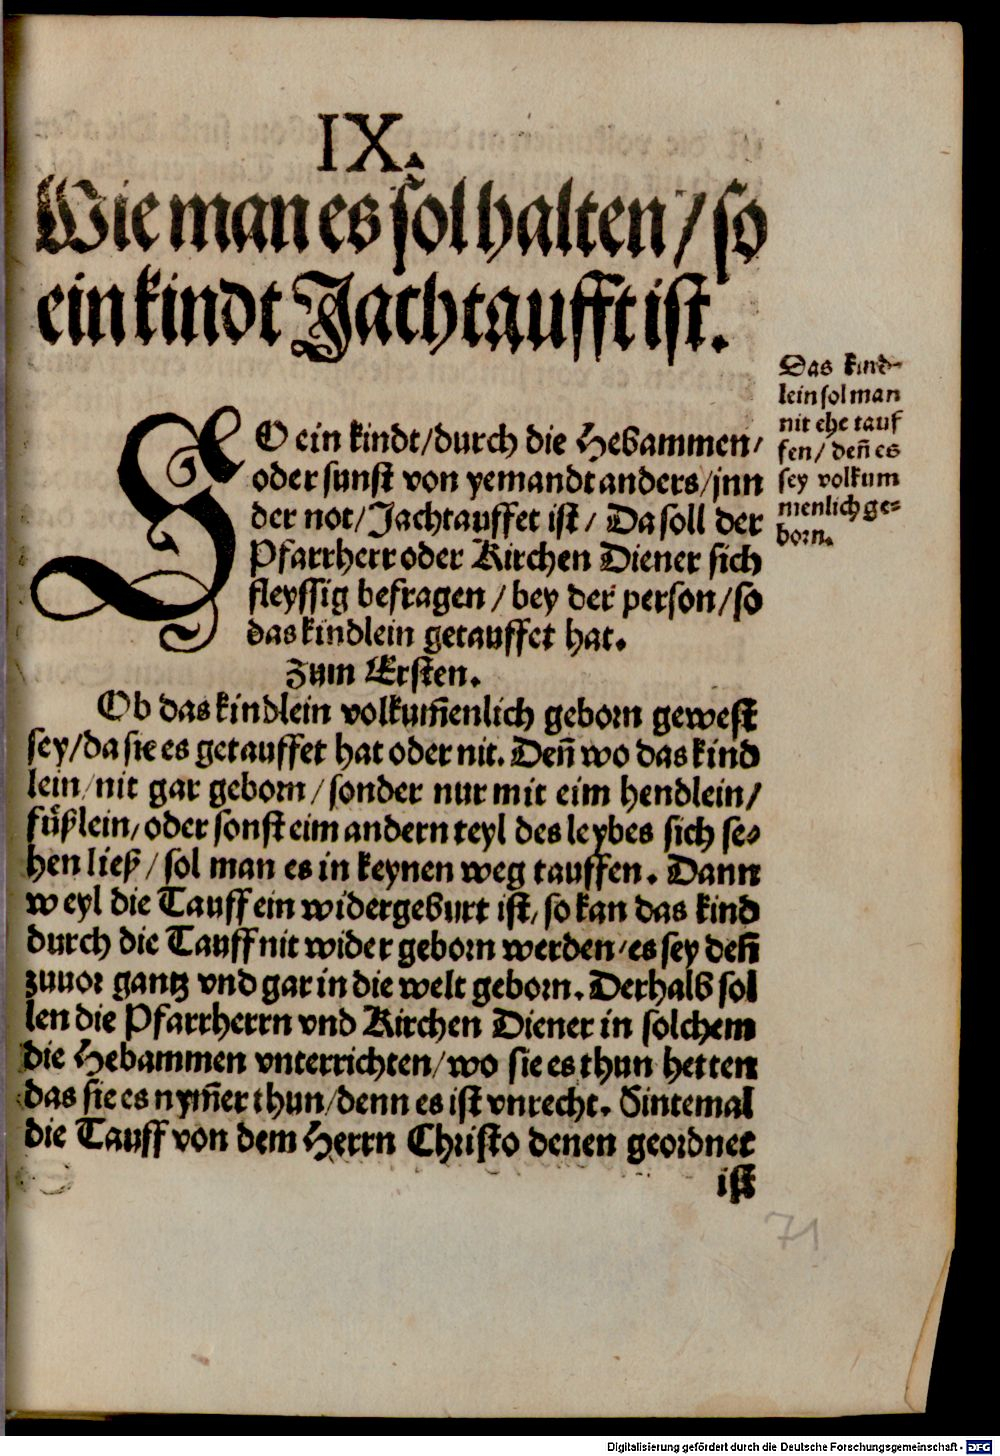 IX.
Wie man es sol halten / so
ein kindt Jachtaufft ist.
Das kind-
lein sol man
nit ehe tauf
fen / deñ es
sey volkum
menlich ge-
born.
SO ein kindt / durch die Hebammen /
oder sunst von yemandt anders / jnn
der not / Jachtauffet ist / Da soll der
Pfarrherr oder Kirchen Diener sich
fleyssig befragen / bey der person / so
das kindlein getauffet hat.
Zum Ersten.
Ob das kindlein volkum̃enlich geborn gewest
sey / da sie es getauffet hat oder nit. Deñ wo das kind
lein / nit gar geborn / sonder nur mit eim hendlein /
füßlein / oder sonst eim andern teyl des leybes sich se-
hen ließ / sol man es in keynen weg tauffen. Dann
weyl die Tauff ein widergeburt ist / so kan das kind
durch die Tauff nit wider geborn werden / es sey deñ
zuuor gantz vnd gar in die welt geborn. Derhalb sol
len die Pfarrherrn vnd Kirchen Diener in solchem
die Hebammen vnterrichten / wo sie es thun hetten
das sie es nym̃er thun / denn es ist vnrecht. Sintemal
die Tauff von dem Herrn Christo denen geordnet
ist
71
Digitalisierung gefördert durch die Deutsche Forschungsgemeinschaft - DFG